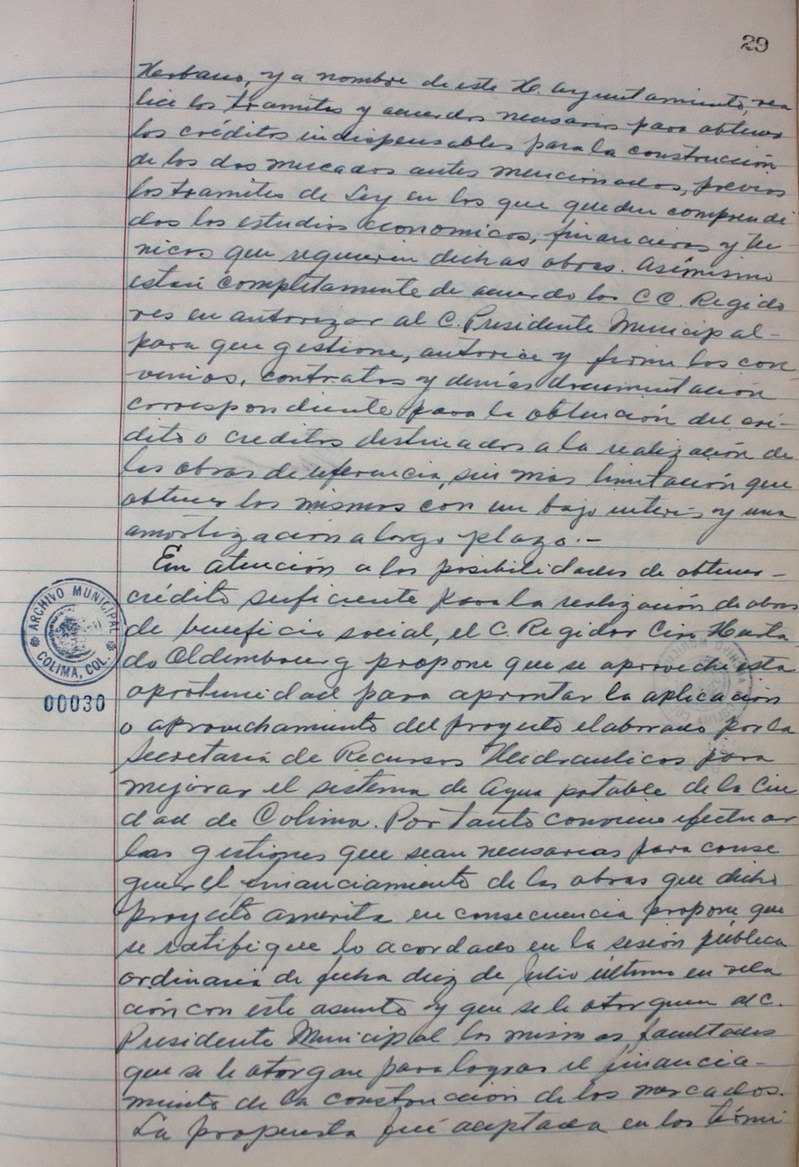 29
Hurbano, y a nombre de este H. Ayuntamiento, rea
lice los tramites y acuerdos necesarios para obtener
los créditos indispensables para la construcción
de los dos mercados antes mencionados, previos
los tramites de Ley en los que queden comprendi
dos los estudios economicos, financieros y tec
nicos que requieren dichas obras. Asimismo
están completamente de acuerdo los CC. Regido
res en autorizar al C. Presidente Municipal-
para que gestione, autorice y firme los con
venios, contratos y demás documentación
correspondiente para la obtención del cré-
dito o creditos destinados a la realización de
las obras de referencia, sin mas limitación que
obtener los mismos con un bajo interés y una
amortización a largo plazo.-
En atención a las posibilidades de obtener-
crédito suficiente para la realización de obras
de beneficio social, el C. Regidor Ciro Hurta
do Oldembourg propone que se aproveche esta
oportunidad para aprontar la aplicación
o aprovechamiento del proyecto elaborado por la
Secretaría de Recursos Hidraulicos para
mejorar el sistema de Agua potable de la Ciu
dad de Colima. Por tanto conviene efectuar
las gestiones que sean necesarias para conse
guir el financiamiento de las obras que dicho
proyecto amerita en consecuencia propone que
se ratifique lo acordado en la sesión pública
ordinaria de fecha diez de Julio último en rela
ción con este asunto y que se le otorguen al C.
Presidente Municipal las mismas facultades
que se le otorgan para lograr el financia-
miento de la construcción de los mercados.
La propuesta fué aceptada en los térmi
ARCHIVO MUNICIPAL
COLIMA, COL.
00030